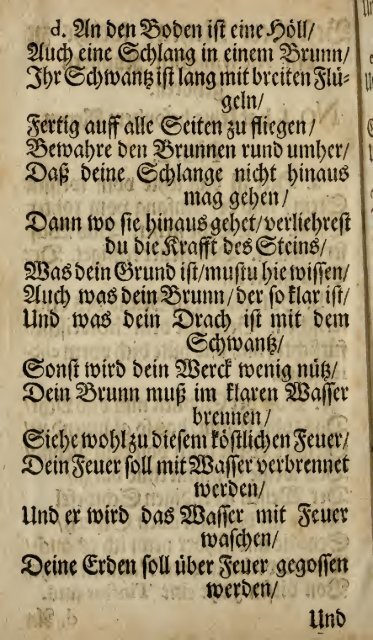 d. An den Boden ist eine Höll/
Auch eine Schlang in einem Brunn/
Ihr Schwantz ist lang mit breiten Flü-
geln/
Fertig auff alle Seiten zu fliegen/
Bewahre den Brunnen rund umher/
Daß deine Schlange nicht hinaus
mag gehen/
Dann wo sie hinaus gehet/verliehrest
du die Krafft des Steins/
Was dein Grund ist/mustu hie wissen/
Auch was dein Brunn/der so klar ist/
Und was dein Drach ist mit dem
Schwantz/
Sonst wird dein Werck wenig nütz/
Dein Brunn muß im klaren Wasser
brennen/
Siehe wohl zu diesem köstlichen Feuer/
Dein Feuer soll mit Wasser verbrennet
werden/
Und er wird das Wasser mit Feuer
waschen/
Deine Erden soll über Feuer gegossen
werden/
Und